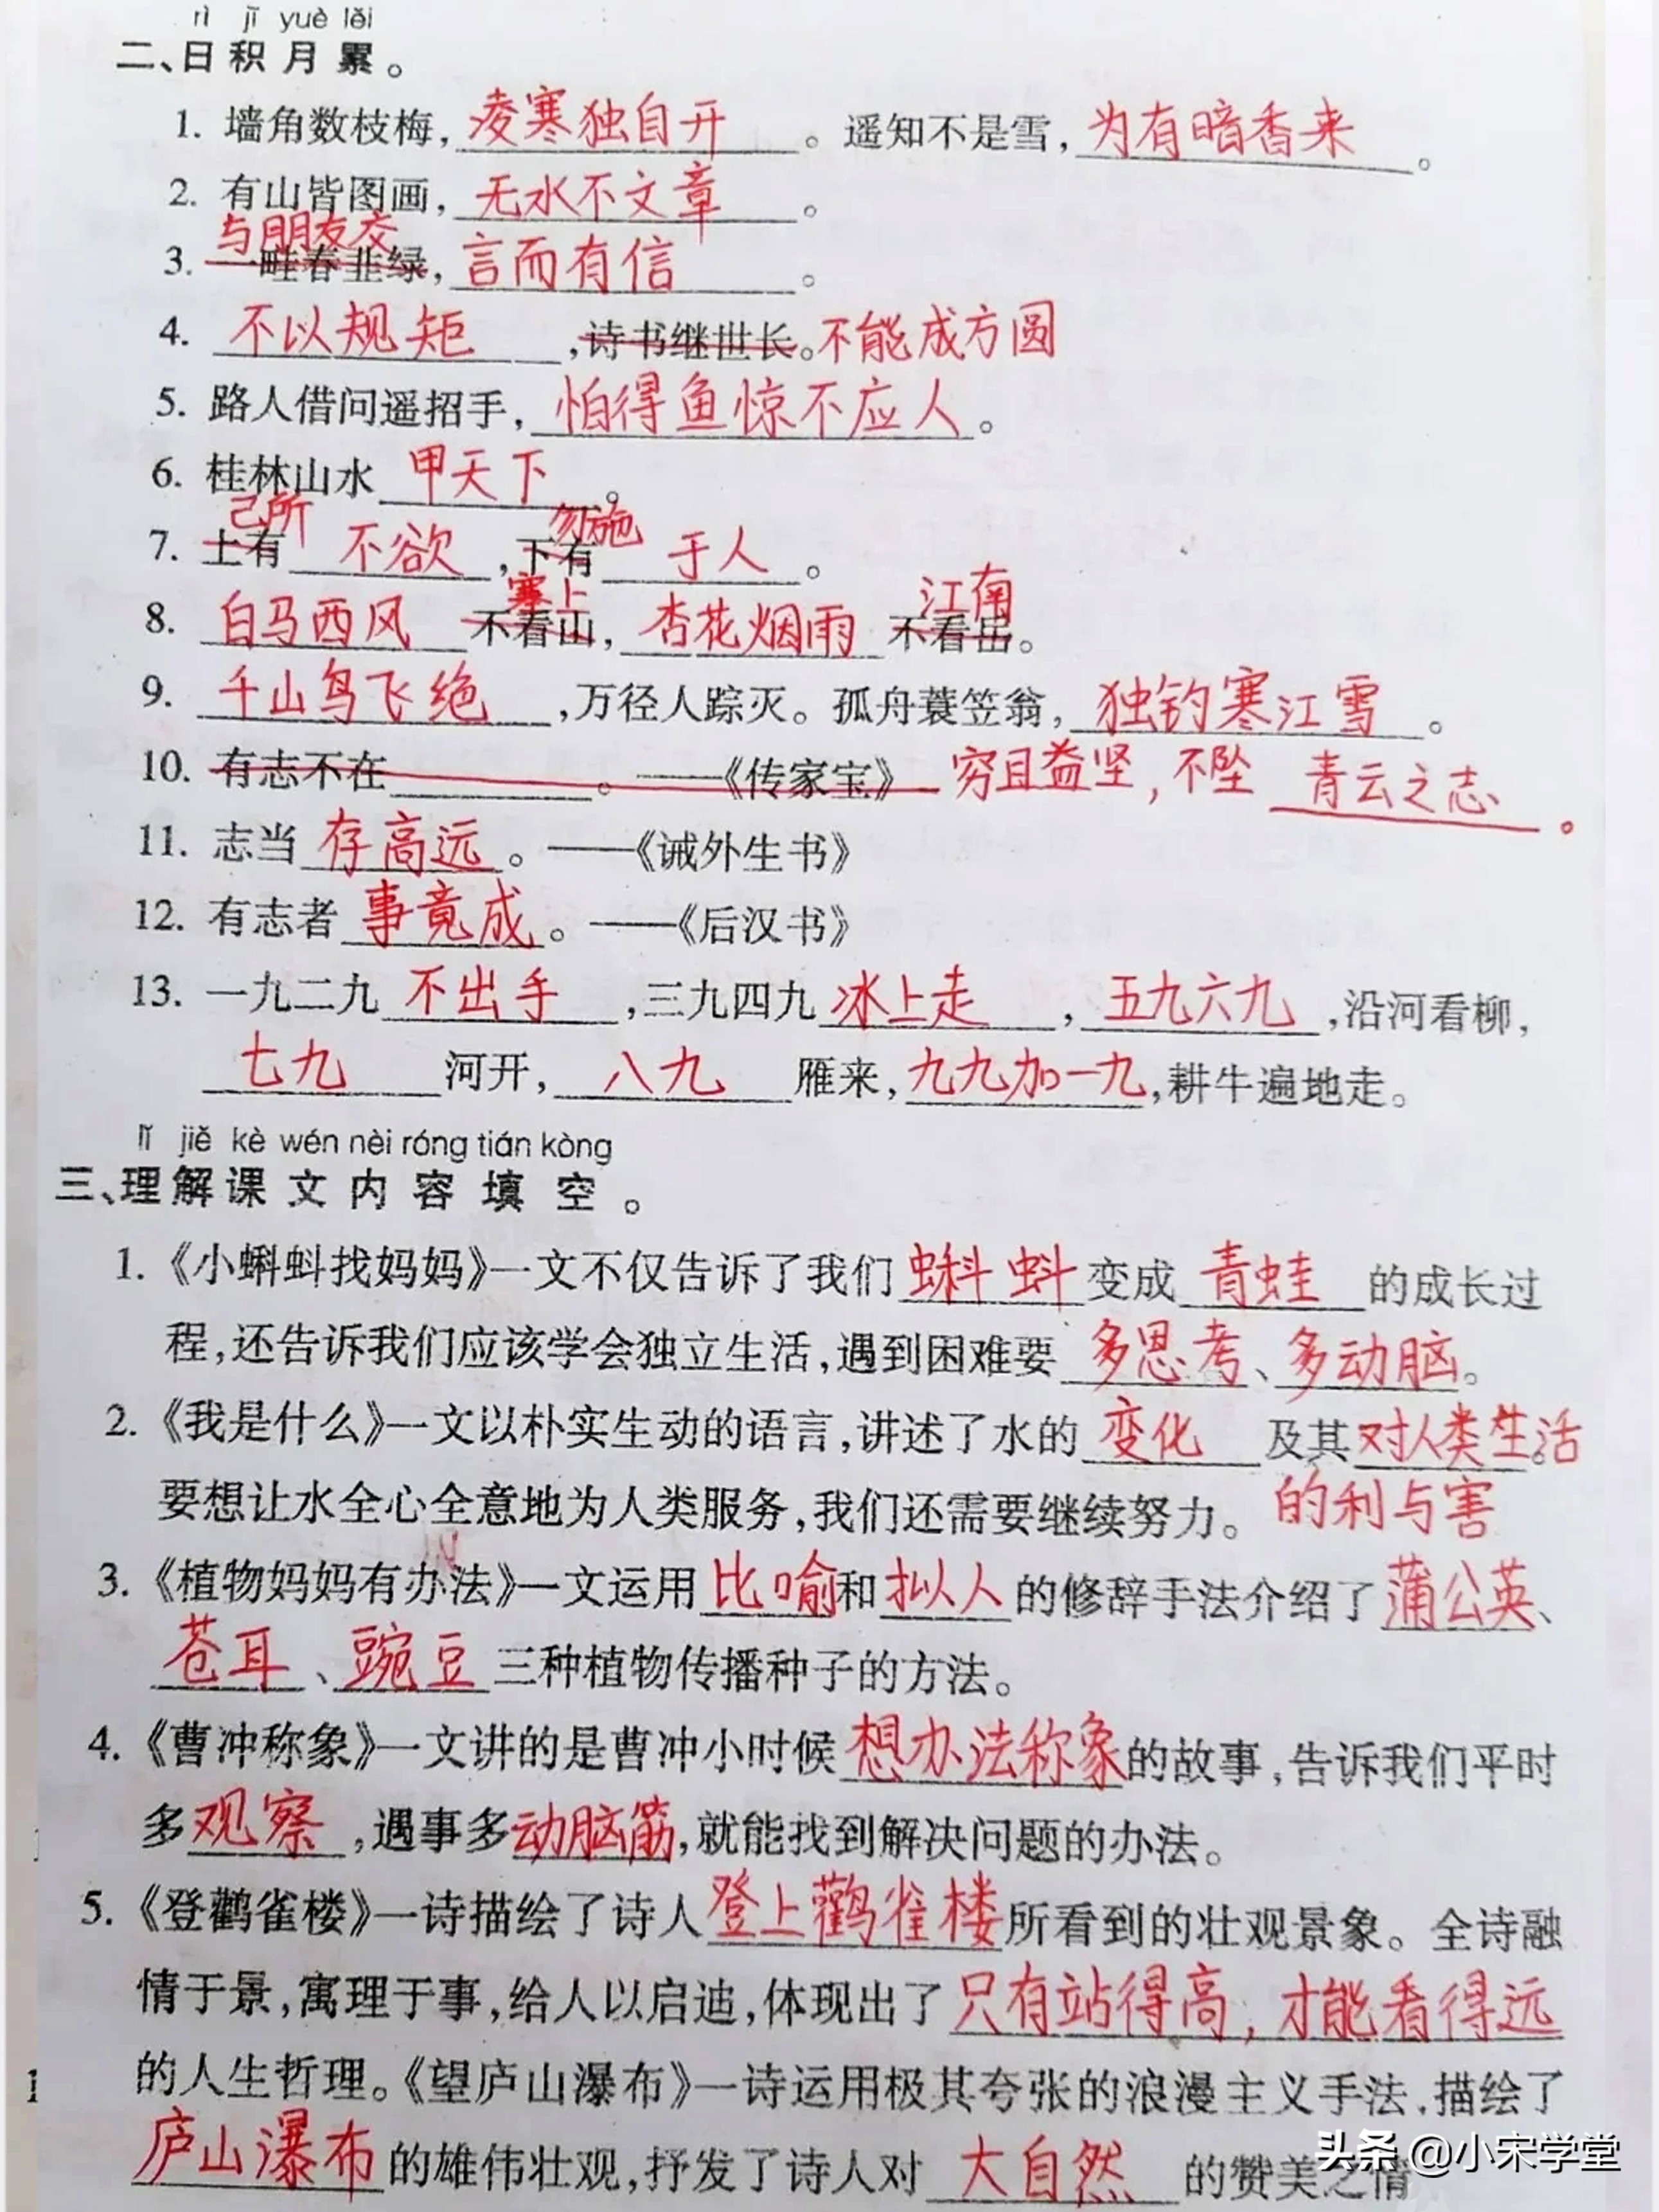 rì jī yuè lěi
二、日积月累。
1. 墙角数枝梅,凌寒独自开。遥知不是雪,为有暗香来。
2. 有山皆图画,无水不文章。
与朋友交
3. 一畦春韭绿,言而有信。
4. 不以规矩,诗书继世长。不能成方圆
5. 路人借问遥招手,怕得鱼惊不应人。
6. 桂林山水甲天下。
己所 勿施
7. 上有不欲,下有于人。
塞上 江南
8. 白马西风不看山,杏花烟雨不看岳。
9. 千山鸟飞绝,万径人踪灭。孤舟蓑笠翁,独钓寒江雪。
10. 有志不在。——《传家宝》 穷且益坚,不坠青云之志。
11. 志当存高远。——《诫外生书》
12. 有志者事竟成。——《后汉书》
13. 一九二九不出手,三九四九冰上走,五九六九,沿河看柳,
七九河开,八九雁来,九九加一九,耕牛遍地走。
lǐ jiě kè wén nèi róng tián kòng
三、理解课文内容填空。
1.《小蝌蚪找妈妈》一文不仅告诉了我们蝌蚪变成青蛙的成长过
程,还告诉我们应该学会独立生活,遇到困难要多思考、多动脑。
2.《我是什么》一文以朴实生动的语言,讲述了水的变化及其对人类生活。
要想让水全心全意地为人类服务,我们还需要继续努力。 的利与害
3.《植物妈妈有办法》一文运用比喻和拟人的修辞手法介绍了蒲公英、
苍耳、豌豆三种植物传播种子的方法。
4.《曹冲称象》一文讲的是曹冲小时候想办法称象的故事,告诉我们平时
多观察,遇事多动脑筋,就能找到解决问题的办法。
5.《登鹳雀楼》一诗描绘了诗人登上鹳雀楼所看到的壮观景象。全诗融
情于景,寓理于事,给人以启迪,体现出了只有站得高,才能看得远
的人生哲理。《望庐山瀑布》一诗运用极其夸张的浪漫主义手法,描绘了
庐山瀑布的雄伟壮观,抒发了诗人对大自然的赞美之情
头条 @小宋学堂